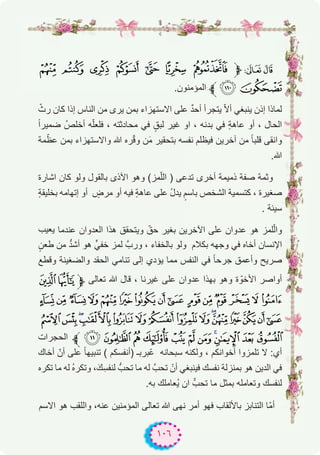 قَالَ تَعَالَىٰ: ﴿ فَاتَّخَذْتُمُوهُمْ سِخْرِيًّا حَتَّىٰ أَنسَوْكُمْ ذِكْرِي وَكُنتُم مِّنْهُمْ
تَضْحَكُونَ ﴿١١٠﴾ المؤمنون.
لماذا إذن ينبغي ألاّ يتجرأ أحدٌ على الاستهزاء بمن يرى من الناس إذا كان رثَّ
الحال ، أو عاهةٍ في بدنه ، او غير لبقٍ في محادثته ، فلعلّه أخلصُ ضميراً
وانقى قلباً من آخرين فيظلم نفسه بتحقير مَن وقّره الله والاستهزاء بمن عظّمة
الله.
وثمة صفة ذميمة أخرى تدعى ( اللّمز) وهو الأذى بالقول ولو كان اشارة
صغيرة ، كتسمية الشخص باسم يدلّ على عاهةٍ فيه أو مرضٍ أو إتهامه بخليقةٍ
سيئة .
واللّمز هو عدوان على الآخرين بغير حقّ ويتحقق هذا العدوان عندما يعيب
الإنسان أخاه في وجهه بكلام ولو بالخفاء ، وربَّ لمز خفيٍّ هو أشدُّ من طعنٍ
صريح وأعمق جرحاً في النفس مما يؤدي إلى تنامي الحقد والضغينة وقطع
أواصر الأخوّة وهو بهذا عدوان على غيرنا ، قال الله تعالى ﴿ يَا أَيُّهَا الَّذِينَ
آمَنُوا لَا يَسْخَرْ قَوْمٌ مِّن قَوْمٍ عَسَىٰ أَن يَكُونُوا خَيْرًا مِّنْهُمْ وَلَا نِسَاءٌ مِّن نِّسَاءٍ
عَسَىٰ أَن يَكُنَّ خَيْرًا مِّنْهُنَّ وَلَا تَلْمِزُوا أَنفُسَكُمْ وَلَا تَنَابَزُوا بِالْأَلْقَابِ بِئْسَ الِاسْمُ
الْفُسُوقُ بَعْدَ الْإِيمَانِ وَمَن لَّمْ يَتُبْ فَأُولَٰئِكَ هُمُ الظَّالِمُونَ ﴿١١﴾ الحجرات
أي: لا تلمزوا أخوانكم ، ولكنه سبحانه عَبربـ (أنفسكم ) تنبيهاً على أنَّ أخاك
في الدين هو بمنزلة نفسك فينبغي أنْ تحبُّ له ما تحبُّ لنفسك، وتكرهُ له ما تكره
لنفسك وتعامله بمثل ما تحبُّ ان يُعاملك به.
أمّا التنابز بالألقاب فهو أمر نهى الله تعالى المؤمنين عنه، واللقب هو الاسم
١٠٦